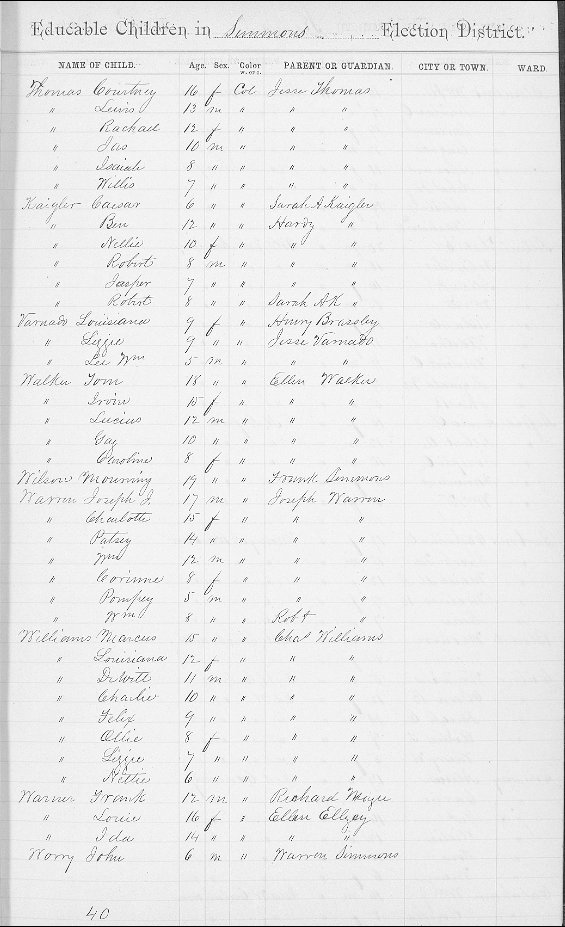 Educable Children in Simmons Election District.
NAME OF CHILD. Age. Sex. Color w. or c. PARENT OR GUARDIAN. CITY OR TOWN. WARD.
Thomas Courtney 16 f Col Jesse Thomas
" Lewis 13 m " " "
" Rachael 12 f " " "
" Jas 10 m " " "
" Isaiah 8 " " " "
" Willis 7 " " " "
Kaigler Caesar 6 " " Sarah A Kaigler
" Ben 12 " " Hardy "
" Nellie 10 f " " "
" Robert 8 m " " "
" Jasper 7 " " " "
" Robert 8 " " Sarah AK "
Varnado Louisiana 9 f " Henry Brassley
" Lizzie 9 " " Jesse Varnado
" Lee Wm 5 m " " "
Walker Tom 18 " " Ellen Walker
" Irvin 15 f " " "
" Lucius 12 m " " "
" Gay 10 " " " "
" Caroline 8 f " " "
Wilson Mourning 19 " " Frank Simmons
Warren Joseph J. 17 m " Joseph Warren
" Charlotte 15 f " " "
" Patsey 14 " " " "
" Wm 12 m " " "
" Corinne 8 f " " "
" Pompey 5 m " " "
" Wm 8 " " Robt "
Williams Marcus 15 " " Chas Williams
" Louisiana 12 f " " "
" DeWitt 11 m " " "
" Charlie 10 " " " "
" Felix 9 " " " "
" Ollie 8 f " " "
" Lizzie 7 " " " "
" Hettie 6 " " " "
Warner Frank 12 m " Richard
" Louie 16 f " Ellen Ellzey
" Ida 14 " " " "
Worry John 6 m " Warren Simmons
40